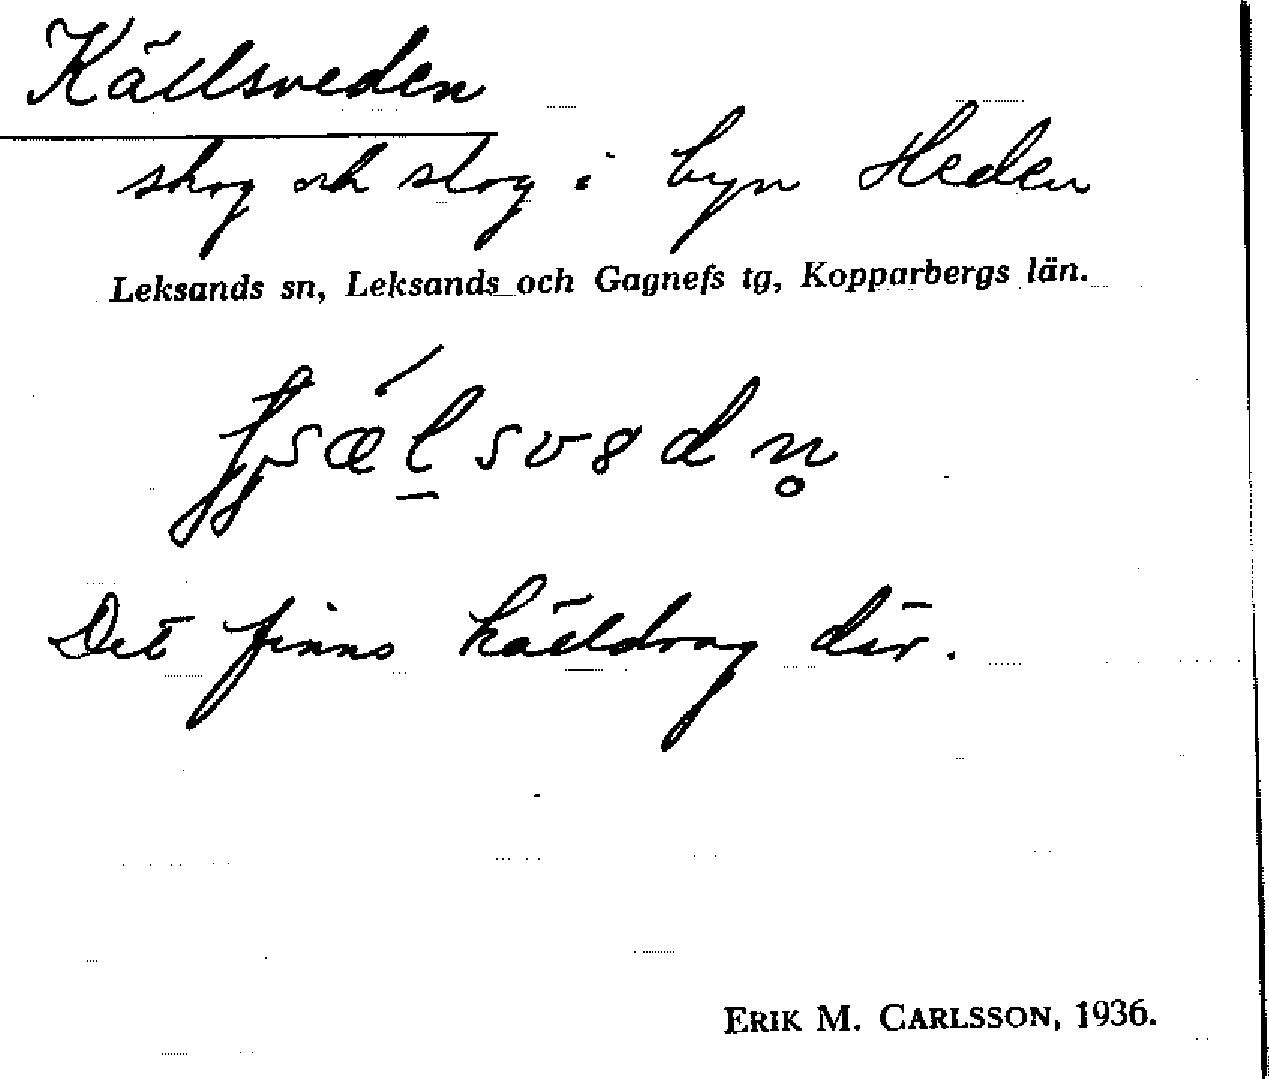 Källsveden
skog och slog i byn Heden
Leksands sn, Leksands och Gagnefs tg, Kopparbergs län.
Det finns källdrag där.
ERIK M. CARLSSON, 1936.